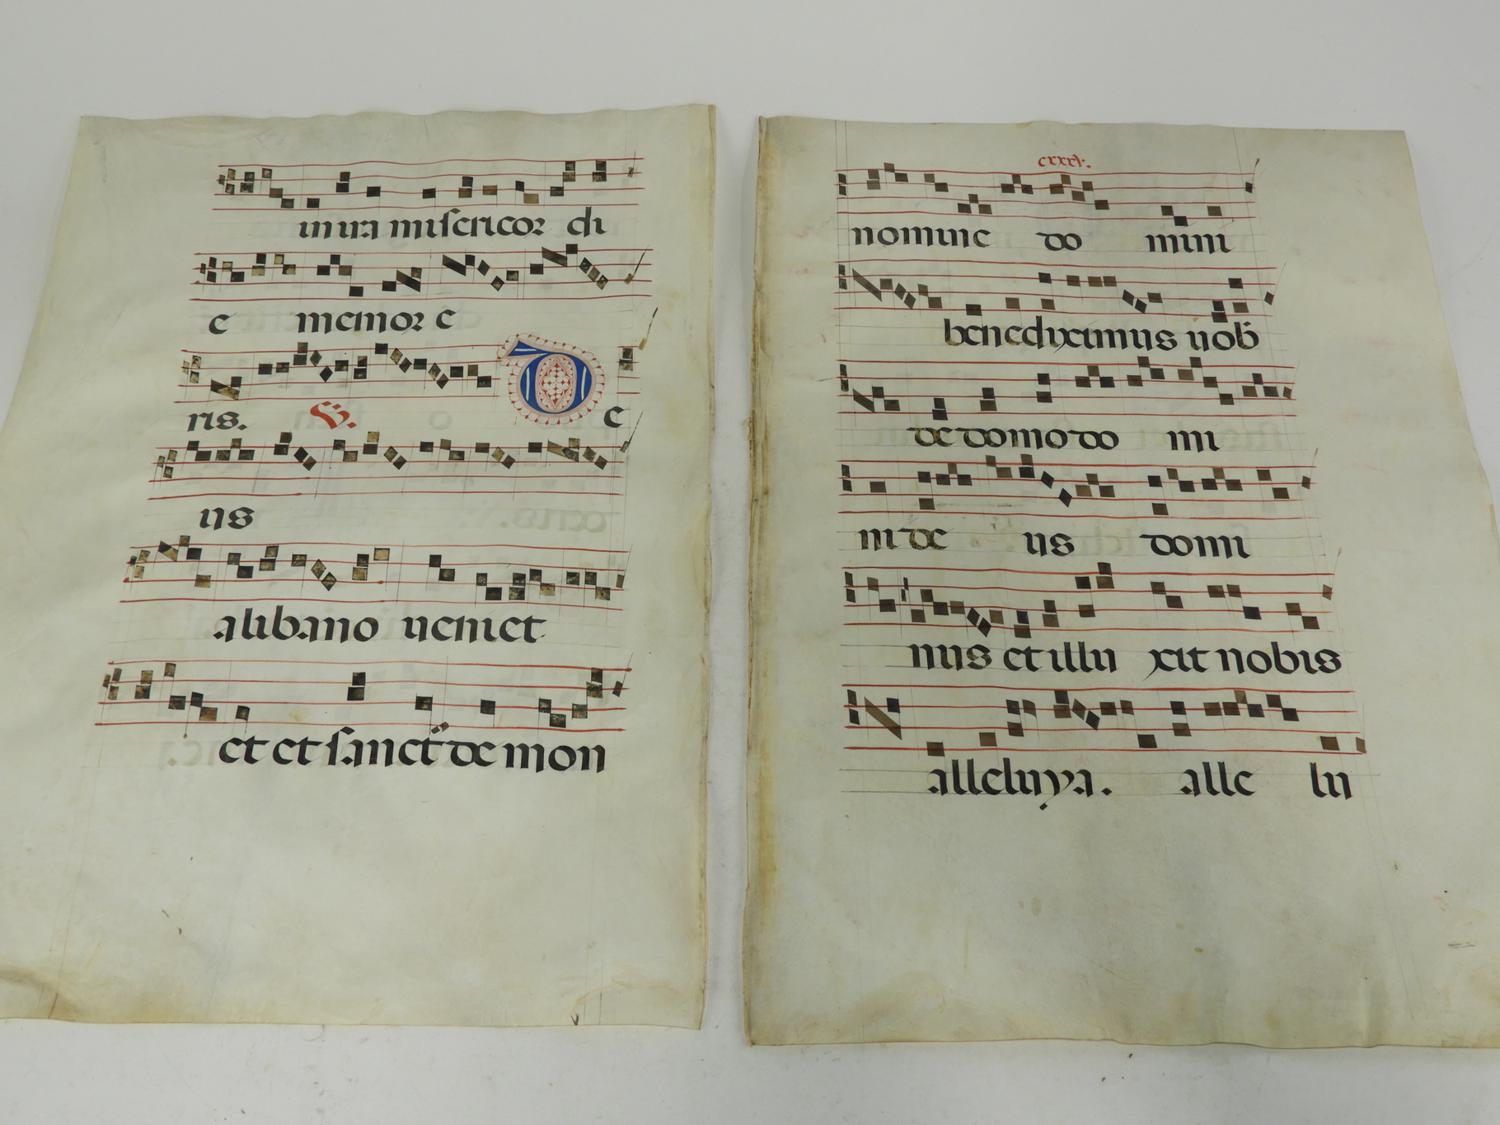 in ira misericor di
e memor e
ris. V. D e
us
a libano veniet
et et sanct de mon
cxxxv.
nomine do mini
benediximus vob
de domo do mi
ni de us domi
nus et illu xit nobis
alleluya. alle lu